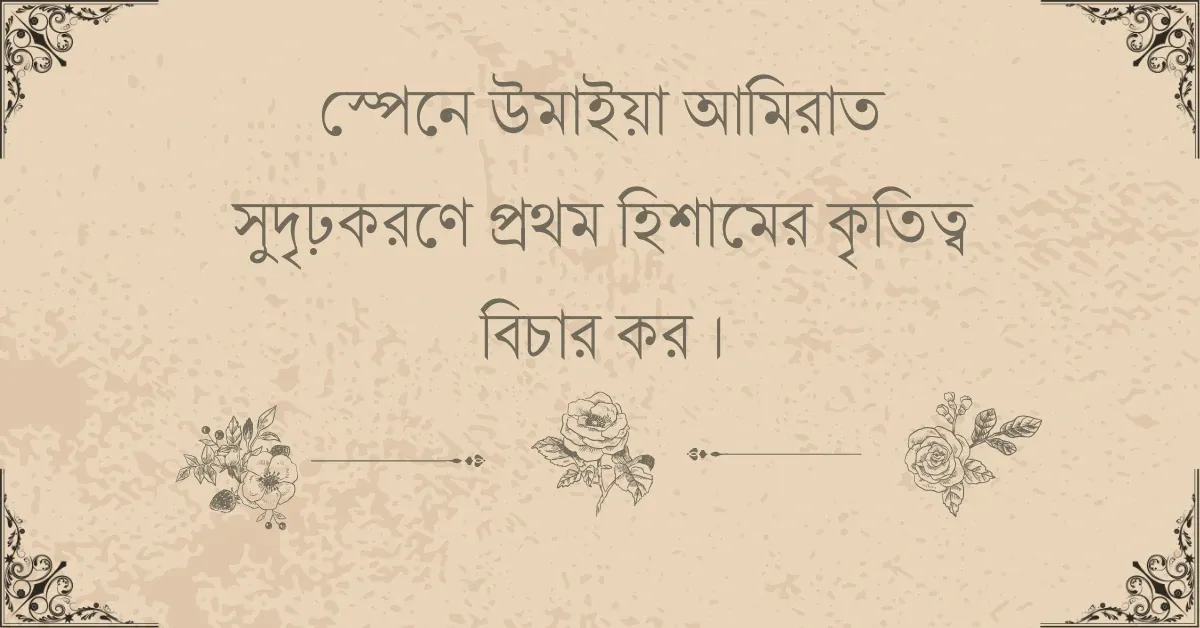 স্পেনে উমাইয়া আমিরাত
সুদৃঢ়করণে প্রথম হিশামের কৃতিত্ব
বিচার কর ।